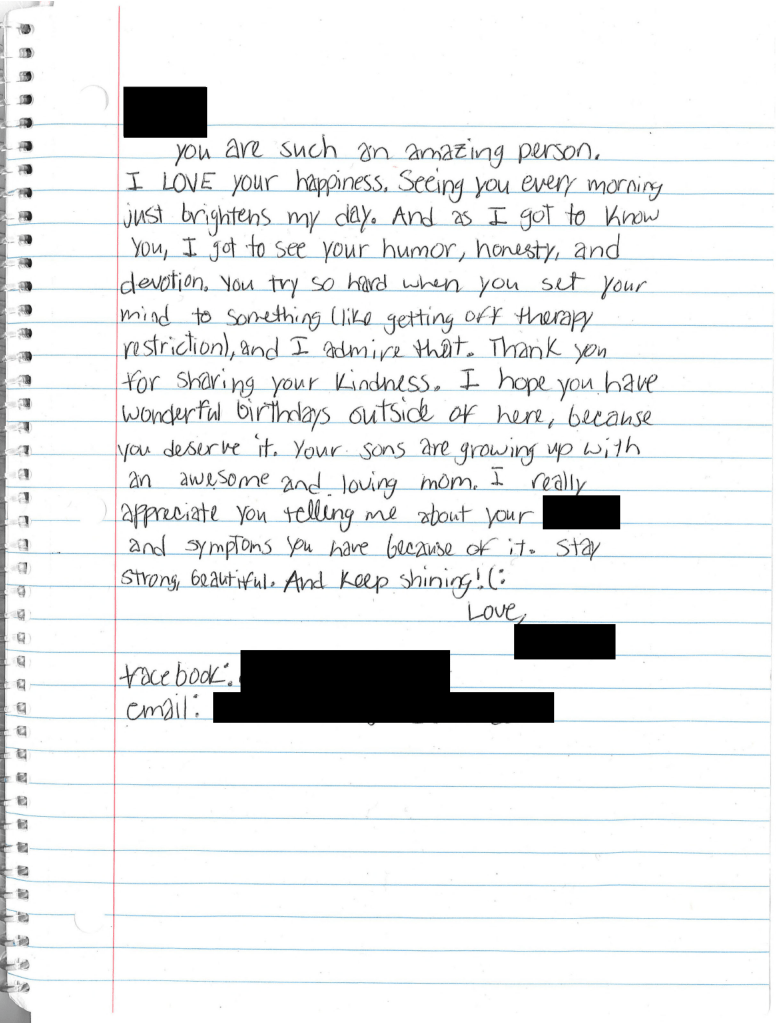 you are such an amazing person.
I LOVE your happiness. Seeing you every morning
just brightens my day. And as I got to know
you, I got to see your humor, honesty, and
devotion. You try so hard when you set your
mind to something (like getting off therapy
restriction), and I admire that. Thank you
for sharing your kindness. I hope you have
wonderful birthdays outside of here, because
you deserve it. Your sons are growing up with
an awesome and loving mom. I really
appreciate you telling me about your
and symptoms you have because of it. Stay
strong, beautiful. And keep shining! (:
Love,
facebook:
email: